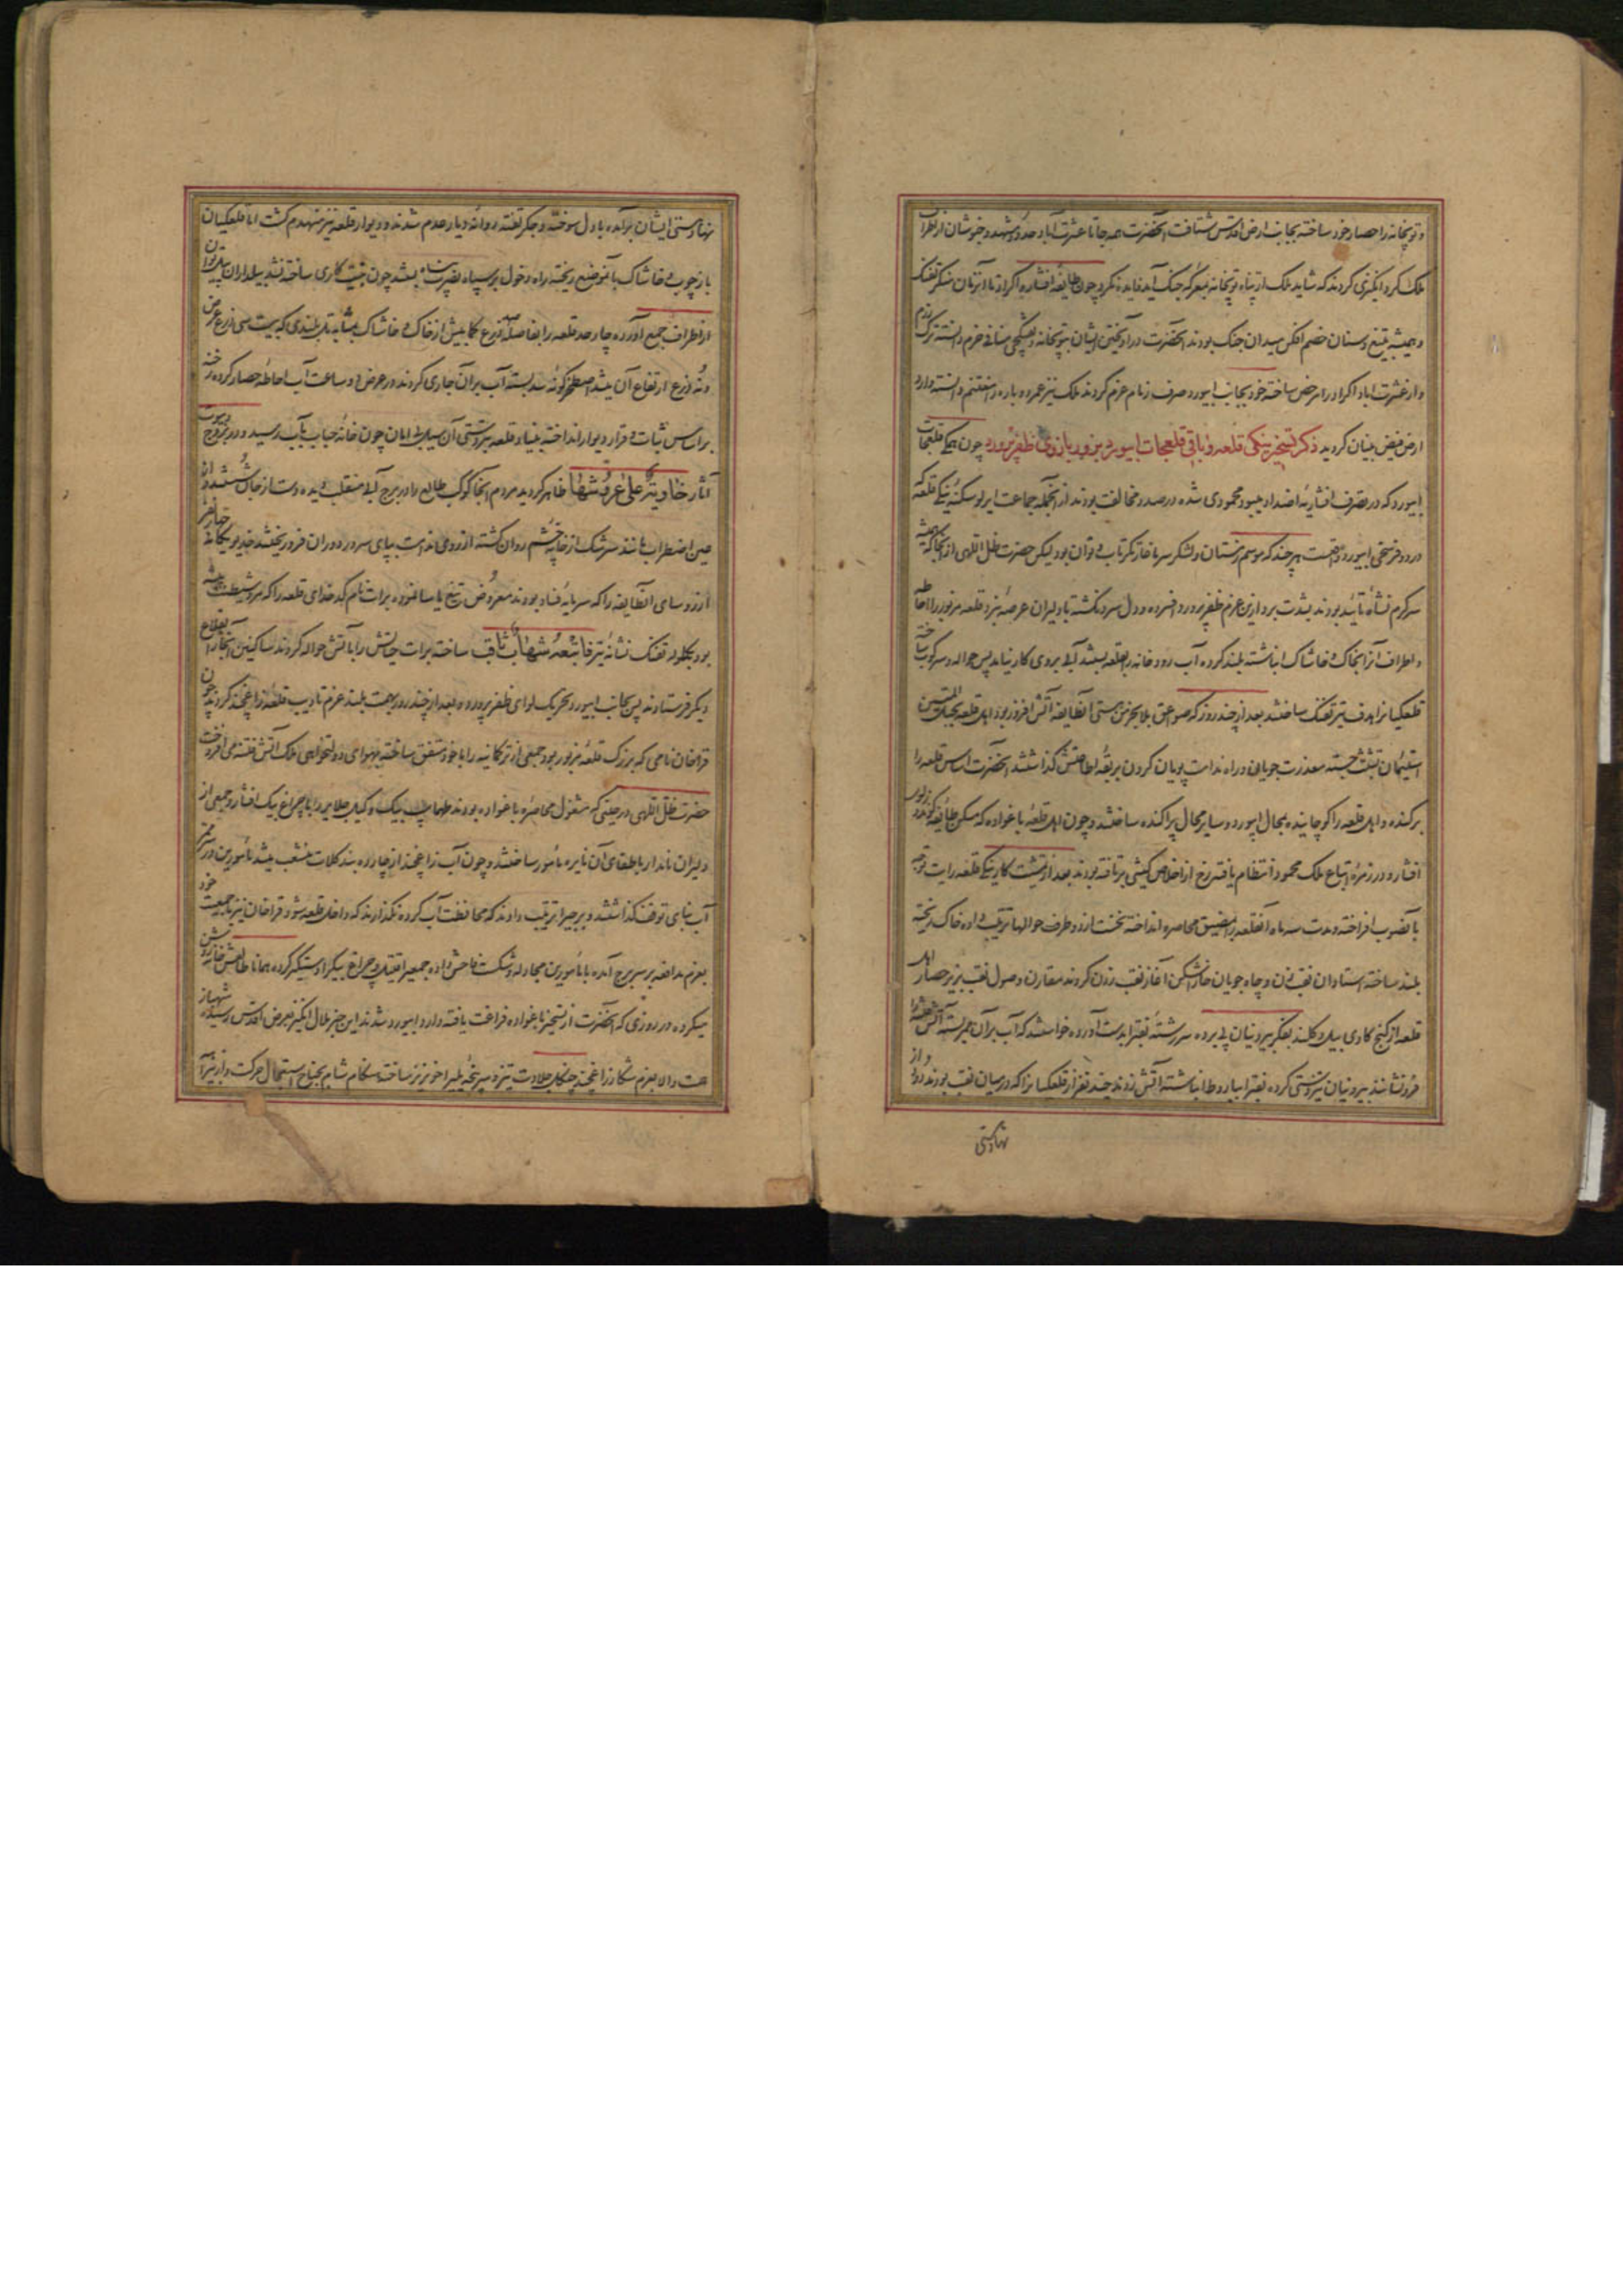 و توپخانه را حصار خود ساخته بجانب ارض اقدس شتافت آنحضرت همه جا تا عشرت آباد حدود مشهد و خبوشان از اطراف
ملک کر و انگیزی کردند که شاید ملک از پناه توپخانه بمعرکه جنک آید فایده نکرد چون طایفه افشار و اکراد تفنک
و همیشه بتیغ و سنان خصم افکن میدان جنک بودند آنحضرت در آویختن ایشان بتوپخانه و منافی حزم دانسته ترک رزم
و از عشرت آباد اکراد را مرخص ساخته خود بجانب ابیورد صرف زمام عزم کردند ملک نیز عمر دوباره را مغتنم دانسته وارد
ارض فیض بنیان گردید ذکر تسخیر ینکی قلعه و باقی قلعجات ابیورد بزور بازوی ظفرپرورد چون همکی قلعجات
ابیورد که در تصرف افشاریه اضداد میبود محمودی شده در صدد مخالفت بودند از آنجمله جماعت ایرلو سکنه ینکی قلعه که
در دو فرسخی ابیورد واقعست هر چند که موسم زمستان و لشکر سرما غارتکر تاب و توان بود لیکن حضرت ظل اللهی از آنجا که همیشه
سرگرم نشأه تأیید بودند بشدت برد ازین عزم ظفرپرور افسرده و دل سرد نکشته با دلیران عرصه نبرد قلعه مزبور را احاطه
و اطراف آنرا بخاک و خاشاک انباشته بلند کرده آب رودخانه را بقلعه بستند آبی بروی کار نیامد پس حواله و سرکوب ساخته
قلعکیانرا هدف تیر تفنک ساختند بعد از چند روز که صواعق بلا بخرمن هستی آنطایفه آتش افروز بود اهل قلعه بحبل المتین
استیمان تشبث جسته معذرت جویان و راه ندامت پویان کردن بربقه اطاعتش گذاشتند آنحضرت اساس قلعه را
برکنده و اهل قلعه را کوچانیده بمحال ابیورد و سایر محال پراکنده ساختند و چون اهل قلعه باغواده که مسکن طایفه کوندوزلوی
افشار و در زمره اتباع ملک محمود انتظام یافته رخ از اخلاص کیشی برتافته بودند بعد از تمشیت کار ینکی قلعه رایت توجه
بآنصوب افراخته و مدت سه ماه آنقلعه را بمضیق محاصره انداخته نخست از دو طرف حوالها ترتیب داده خاک ریخته
بلند ساخته استادان نقب زن و چاه جویان خاراشکن آغاز نقب زدن کردند مقارن وصول نقب بزیر حصار اهل
قلعه از کنج کاوی بیل و کلند بفکر بیرونیان پی برده سر رشته نقبرا بدست آورده خواستند که آب بر آن بسته آتش فتنه را
فرو نشانند بیرونیان پیشدستی کرده نقبرا بباروط انباشته آتش زدند چند نفر از قلعکیانرا که در میان نقب بودند دود از
نهاد هستی
نهاد هستی ایشان برآمده با دل سوخته و جگر تفته روانه دیار عدم شدند و دیوار قلعه نیز منهدم کشت اما قلعکیان
باز چوب و خاشاک بآنموضع ریخته راه دخول بر سپاه نصرت پناه بستند چون بنقب کاری ساخته نشد بیلداران بیلدارانرا
از اطراف جمع آورده چار حد قلعه را بفاصله ذرع کمابیش از خاک و خاشاک بمثابه تل بلندی که بیست سی ذرع عرض
و نه ذرع ارتفاع آن میشد کونه سد بسته آب بر آن جاری کردند در عرض دو ساعت آب احاطه حصار کرده رخنه
بر اساس ثبات و قرار دیوار انداخته بنیاد قلعه بردستی آن سیل بی امان چون خانه حباب بآب رسید و در بروج و بیوت
آثار خاویة علی عروشها ظاهر گردید مردم آنجا کوکب طالع را در برج آبی منقلب دیده دست از جان شستند و از
عین اضطراب مانند سرشک از خانه چشم روان کشته از روی ندامت بپای سرور دوران فرو ریختند خدیو یکانه چند نفر
از رؤسای آنطایفه را که سرمایه فساد بودند معروض تیغ یاسا نموده برات نام کدخدای قلعه را که سر رشته
بود بکلوله تفنک نشانه تیر فاتبعه شهاب ثاقب ساخته برات حیاتش را بآتش حواله کردند و ساکنین آنجا را بقلاع
دیکر فرستادند پس بجانب ابیورد تحریک لوای ظفرپرور و بعد از چند روز همت بلند عزم تادیب قلعه زاغچند کردند چون
قراخان نامی که بزرک قلعه مزبور بود جمعی از ترکمانیه را با خود متفق ساخته بهوای دولتخواهی ملک آتش فتنه می افروخت
حضرت ظل اللهی در حینی که مشغول محاصره باغواده بودند طهماسب بیک وکیل جلایر را با چراغ بیک افشار و جمعی از
دلیران نامدار باطفای آن نایره مأمور ساختند و چون آب زاغچند از چار ده بند کلات منشعب میشد مأمورین در ممر
آب بنای توقف گذاشتند و برجی ترتیب دادند که محافظت آب کرده نگذارند که داخل قلعه شود قراخان نیز با جمعیت خود
بعزم مدافعه بر سر برج آمده با مأمورین مجادله و شکست فاحش داده جمعیرا قتیل و چراغ بیکرا دستکیر کرده
میکرده در روزی که آنحضرت از تسخیر باغواده فراغت یافته وارد ابیورد شدند این خبر ملال انگیز بعرض اقدس رسیده شهباز
همت والا بعزم شکار زاغچند چنکل جلادت تیز و سرپنجه خونریز ساخته هنکام شام بجناح استعجال حرکت و از نیز آن